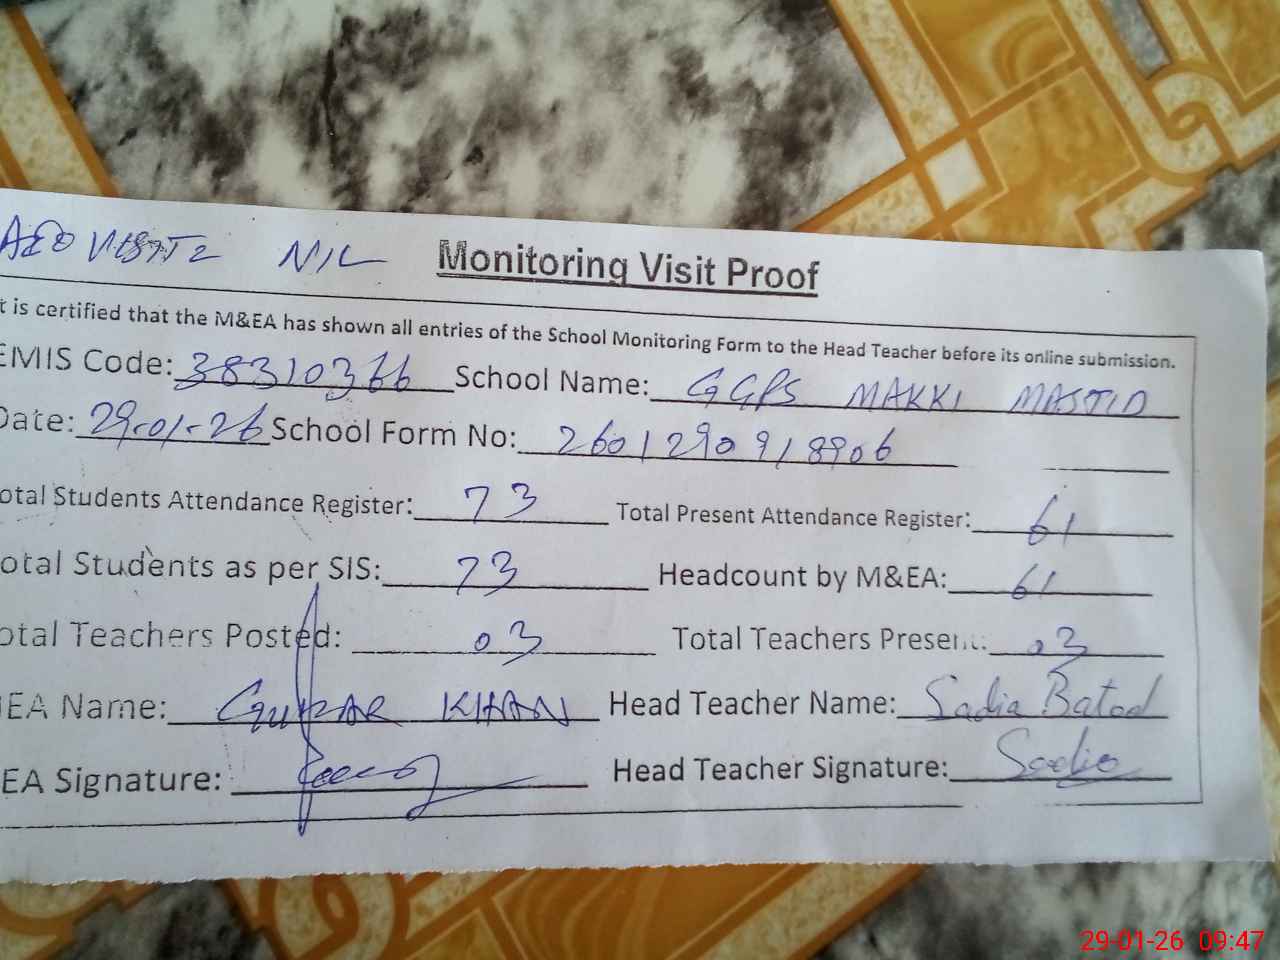 AEO VISIT2 NIL Monitoring Visit Proof
t is certified that the M&EA has shown all entries of the School Monitoring Form to the Head Teacher before its online submission.
EMIS Code: 38310366 School Name: GGPS MAKKI MASJID
Date: 29-01-26 School Form No: 2601290918906
otal Students Attendance Register: 73 Total Present Attendance Register: 61
otal Students as per SIS: 73 Headcount by M&EA: 61
otal Teachers Posted: 03 Total Teachers Present: 03
EA Name: GULZAR KHAN Head Teacher Name: Sadia Batool
EA Signature: Head Teacher Signature: Sadia
29-01-26 09:47